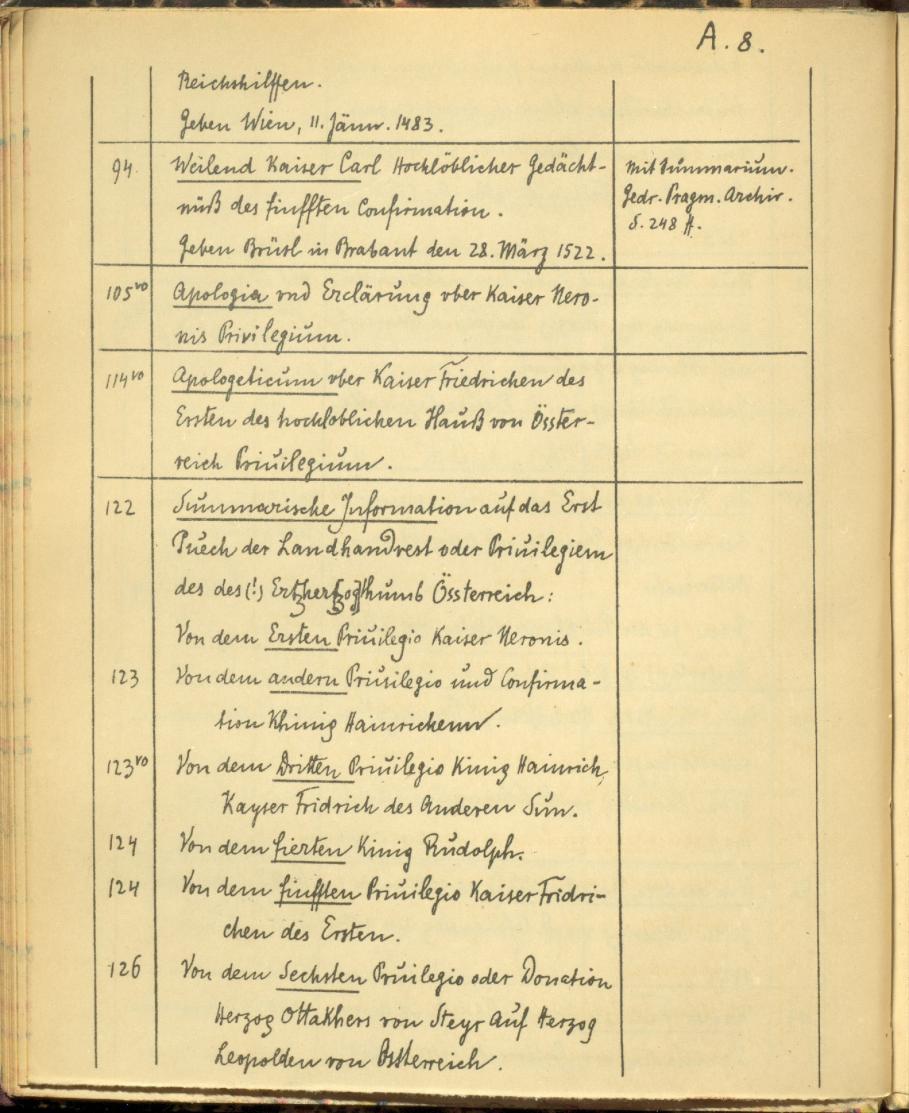 A. 8.
Reichshilffen.
Geben Wien, 11. Jänn. 1483.
94 Weilend Kaiser Carl Hochlöblicher Gedächt-
nüß des finfften Confirmation.
Geben Brüsl in Brabant den 28. März 1522.
Mit Summarium.
Gedr. Pragm. Archiv.
S. 248 ff.
105vo Apologia vnd Erclärung vber Kaiser Nero-
nis Privilegium.
114vo Apologeticum vber Kaiser Friedrichen des
Ersten des hochloblichen Hauß vonÖsster-
reich Priuilegium.
122 Summarische Information auf das Erst
Puech der Landhandvest oder Priuilegiem
des des (!) Ertzhertzogthumb Össterreich:
Von dem Ersten Priuilegio Kaiser Neronis.
123 Von dem andern Priuilegio und Confirma-
tion Khinig Hainrichenn.
123vo Von dem Dritten Priuilegio Kinig Hainrich,
Kayser Fridrich des Anderen Sun.
124 Von dem fierten Kinig Rudolph.
124 Von dem finfften Priuilegio Kaiser Fridri-
chen des Ersten.
126 Von dem Sechsten Priuilegio oder Donation
Herzog Ottakhers von Steyr Auf Herzog
Leopolden von Össterreich.